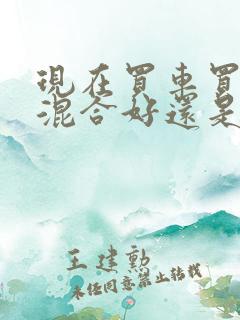 現在買車買
混合好還是
王建勳
未任同意禁止轉載